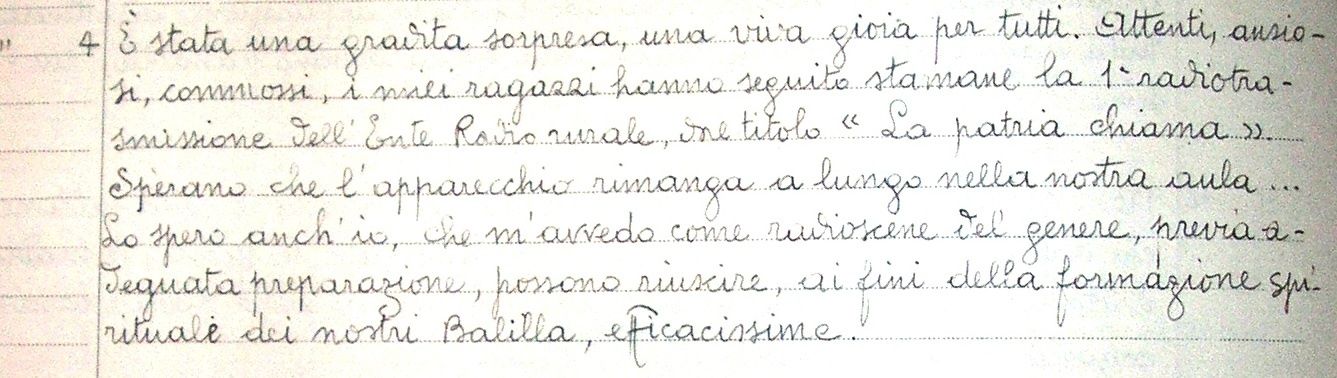 " 4 È stata una gradita sorpresa, una viva gioia per tutti. Attenti, ansio-
si, commossi, i miei ragazzi hanno seguito stamane la 1ª radiotra-
smissione dell'Ente Radio rurale, dal titolo « La patria chiama ».
Sperano che l'apparecchio rimanga a lungo nella nostra aula ...
Lo spero anch'io, che m'avvedo come radioscene del genere, previa a-
deguata preparazione, possono riuscire, ai fini della formazione spi-
rituale dei nostri Balilla, efficacissime.